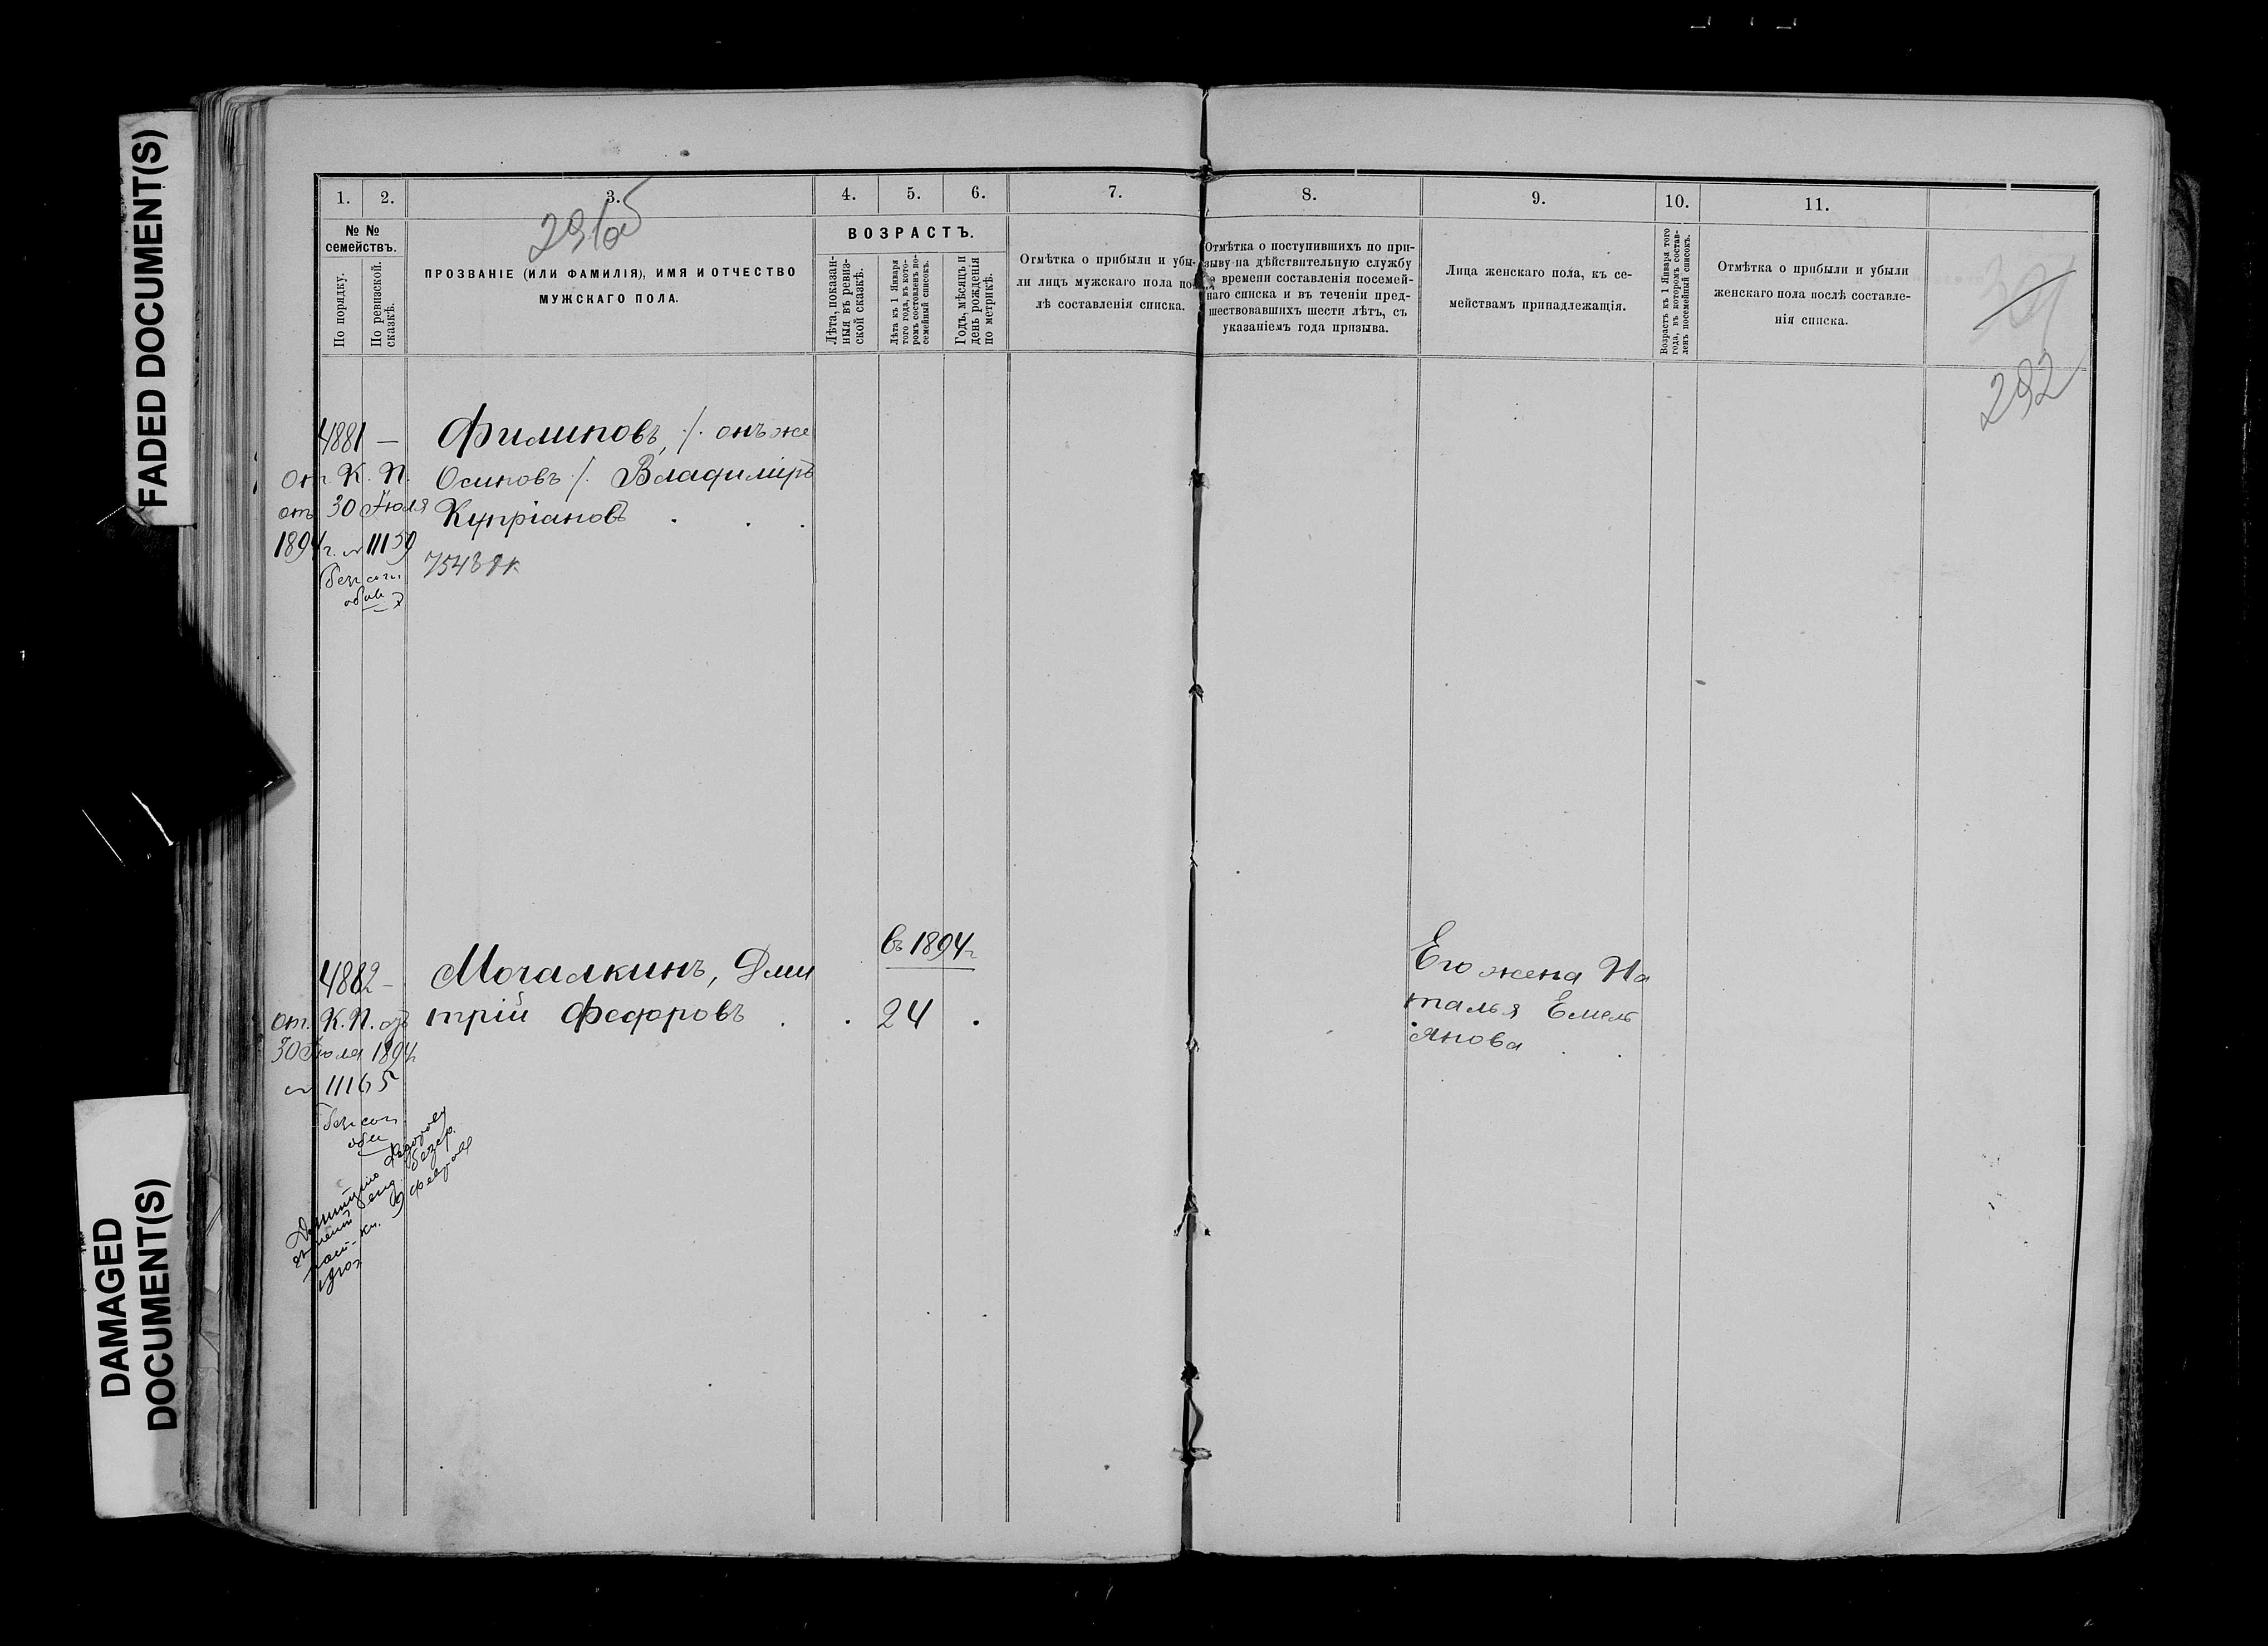 FAADED DOCUMENT(S)
DAMAGED
DOCUMENT(S)
1. 2. 3. 4. 5. 6. 7. 8. 9. 10. 11.
№ №
семействъ.
По порядку.
По ревизской
сказкѣ.
ПРОЗВАНІЕ (ИЛИ ФАМИЛІЯ), ИМЯ И ОТЧЕСТВО
МУЖСКАГО ПОЛА.
ВОЗРАСТЪ.
Лѣта, показан-
ныя въ ревиз-
ской сказкѣ.
Лѣта къ 1 Января
того года, въ кото-
ромъ составленъ по-
семейный списокъ.
Годъ, мѣсяцъ и
день рожденія
по метрикѣ.
Отмѣтка о прибыли и убы-
ли лицъ мужскаго пола по-
лѣ составленія списка.
Отмѣтка о поступившихъ по при-
зыву на дѣйствительную службу
времени составленія посемей-
наго списка и въ теченіи пред-
шествовавшихъ шести лѣтъ, съ
указаніемъ года призыва.
Лица женскаго пола, къ се-
мействамъ принадлежащія.
Возрастъ къ 1 Января того
года, въ которомъ состав-
ленъ посемейный списокъ.
Отмѣтка о прибыли и убыли
женскаго пола послѣ составле-
нія списка.
292
4881 — Филиповъ, /. онъ же
От. К. П. Осиповъ /. Владиміръ
отъ 30 Іюля Купріановъ
1894 г. № 11159
въ 1894 г.
4882 — Мочалкинъ, Дми
трій Федоровъ 24
От. К. П. отъ
30 Іюля 1894 г.
№ 11165
Его жена На
талья Емель
янова